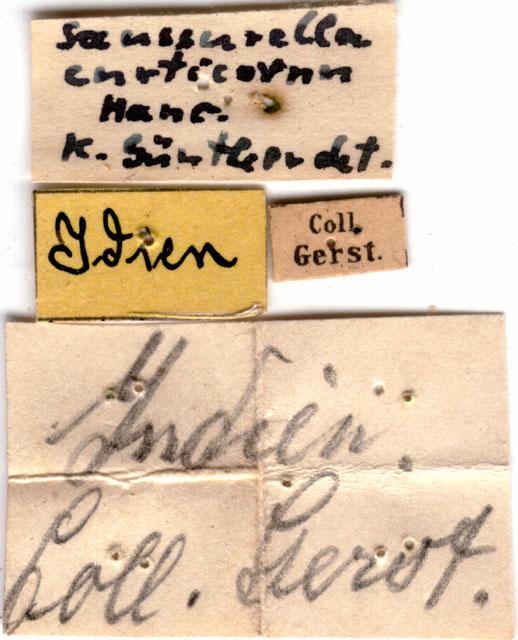 Sansourella
curticornu
Hanc.
K. Günther det.
Idien
Coll.
Gerst.
Indien.
Coll. Gerst.